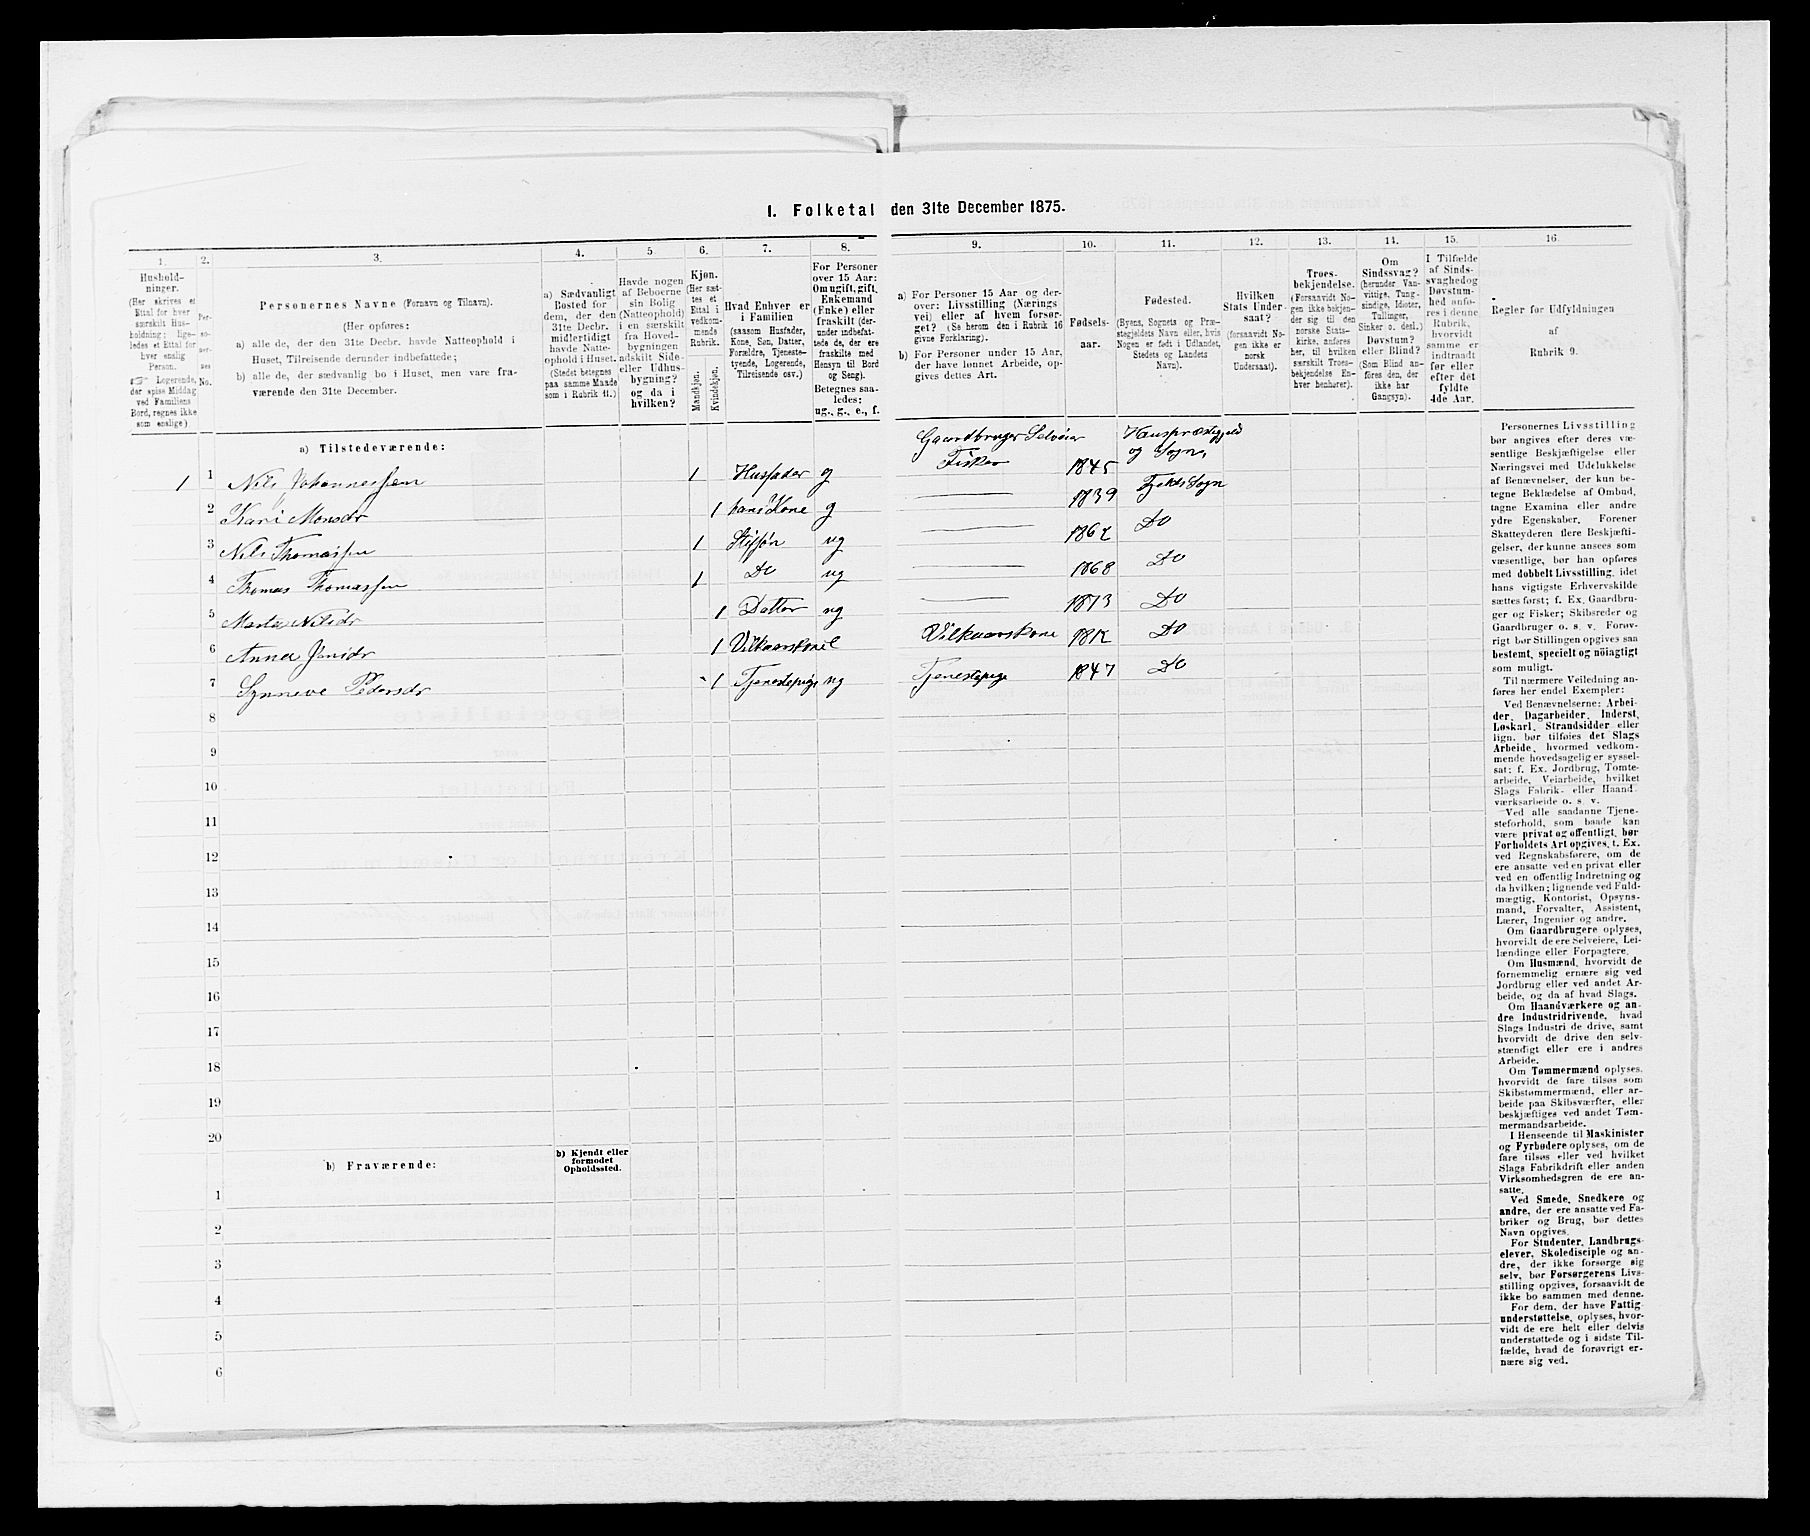 1. Folketal den 31te December 1875.
1. 2. 3. 4. 5 6. 7. 8. 9. 10. 11. 12. 13. 14. 15. 16
Hushold-
ninger.
(Her skrives et
Ettal for hver
særskilt Hus-
holdning; lige-
ledes et Ettal for
hver enslig
Person.
☞ Logerende,
der spise Middag
ved Familiens
Bord, regnes ikke
som enslige)
Per-
so-
ner-
nes
No.
Personernes Navne (Fornavn og Tilnavn).
(Her opføres:
a) alle de, der den 31te Decbr. havde Natteophold i
Huset, Tilreisende derunder indbefattede;
b) alle de, der sædvanlig bo i Huset, men vare fra-
værende den 31te December.
a) Sædvanligt
Bosted for
dem, der den
31te Decbr.
midlertidigt
havde Natte-
ophold i Huset.
(Stedet betegnes
paa samme Maade
som i Rubrik 11.)
Havde nogen
af Beboerne
sin Bolig
(Natteophold)
i en særskilt
fra Hoved-
bygningen
adskilt Side-
eller Udhus-
bygning?
og da i
hvilken?
Kjøn.
(Her sæt-
tes et
Ettal i
vedkom-
mende
Rubrik.
Mandkjøn.
Kvindekjøn.
Hvad Enhver er
i Familien
(saasom Husfader,
Kone, Søn, Datter,
Forældre, Tjeneste-
tyende, Logerende,
Tilreisende osv.)
For Personer
over 15 Aar:
Om ugift, gift,
Enkemand
(Enke) eller
fraskilt (der-
under indbefat-
tede de, der ere
fraskilte med
Hensyn til Bord
og Seng).
Betegnes saa-
ledes:
ug., g., e., f.
a) For Personer 15 Aar og der-
over: Livsstilling (Nærings-
vei) eller af hvem forsør-
get? (Se herom den i Rubrik 16
givne Forklaring).
b) For Personer under 15 Aar,
der have lønnet Arbeide, op-
gives dettes Art.
Fødsels-
aar.
Fødested.
(Byens, Sognets og Præ-
stegjeldets Navn eller, hvis
Nogen er født i Udlandet,
Stedets og Landets
Navn).
Hvilken
Stats Under-
saat?
(forsaavidt No-
gen ikke er
norsk
Undersaat).
Troes-
bekjendelse.
(Forsaavidt No-
gen ikke bekjen-
der sig til den
norske Stats-
kirke, anføres
her, til hvilken
særskilt Troes-
bekjendelse En-
hver henhører).
Om
Sindssvag?
(herunder Van-
vittige, Tung-
sindige, Idioter,
Tullinger,
Sinker o. desl.)
Døvstum?
eller Blind?
(Som Blind an-
føres den, der
ikke har
Gangsyn).
I Tilfælde
af Sinds-
svaghed og
Døvstum-
hed anfø-
res i denne
Rubrik,
hvorvidt
samme er
indtraadt
før eller
efter det
fyldte
4de Aar.
Regler for Udfyldningen
af
Rubrik 9.
a) Tilstedeværende:
1 1 Nils Johannessen 1 Husfader g Gaardbruger Selveier Fisker 1845 Hauspræstegjeld og Sogn,
2 Kari Monsdr 1 hans Kone g 1839 Sogn
3 Nils Thomassen 1 Stifsøn ug 1862 Do
4 Thomas Thomassen 1 Do ug 1868 Do
5 Marta Nilsdr 1 Datter ug 1873 Do
6 Anna Jansdr 1 Vilkaarskone e Vilkaarskone 1812 Do
7 Synneve Pedersdr 1 Tjenestepige ug Tjenestepige 1847 Do
8
9
10
11
12
13
14
15
16
17
18
19
20
b) Fraværende:
b) Kjendt eller
formodet
Opholdssted.
1
2
3
4
5
6
Personernes Livsstilling
bør angives efter deres væ-
sentlige Beskjæftigelse eller
Næringsvei med Udelukkelse
af Benævnelser, der kun be-
tegne Beklædelse af Ombud,
tagne Examina eller andre
ydre Egenskaber. Forener
Skatteyderen flere Beskjæfti-
gelser, der kunne ansees som
væsentlige, bør han opføres
med dobbelt Livsstilling, idet
hans vigtigste Erhvervskilde
sættes først; f. Ex. Gaardbru-
ger og Fisker; Skibsreder og
Gaardbruger o. s. v. Forøv-
rigt bør Stillingen opgives saa
bestemt, specielt og nöiagtigt
som muligt.
Til nærmere Veiledning an-
føres her endel Exempler:
Ved Benævnelserne: Arbei-
der, Dagarbeider, Inderst,
Løskarl, Strandsidder eller
lign. bør tilføies det Slags
Arbeide, hvormed vedkom-
mende hovedsagelig er syssel-
sat; f. Ex. Jordbrug, Tomte-
arbeide, Veiarbeide, hvilket
Slags Fabrik- eller Haand-
værksarbeide o. s. v.
Ved alle saadanne Tjene-
steforhold, som baade kan
være privat og offentligt, bør
Forholdets Art opgives, t. Ex.
ved Regnskabsførere, om de
ere ansatte ved en privat eller
ved en offentlig Indretning og
da hvilken; lignende ved Fuld-
mægtig, Kontorist, Opsyns-
mand, Forvalter, Assistent,
Lærer, Ingeniør og andre.
Om Gaardbrugere oplyses,
hvorvidt de ere Selveiere, Lei-
lændinge eller Forpagtere.
Om Husmænd, hvorvidt de
fornemmelig ernære sig ved
Jordbrug eller ved andet Ar-
beide, og da af hvad Slags.
Om Haandværkere og an-
dre Industridrivende, hvad
Slags Industri de drive, samt
hvorvidt de drive den selv-
stændigt eller ere i andres
Arbeide.
Om Tømmermænd oplyses,
hvorvidt de fare tilsøs som
Skibstømmermænd, eller ar-
beide paa Skibsværfter, eller
beskjæftiges ved andet Tøm-
mermandsarbeide.
I Henseende til Maskinister
og Fyrbødere oplyses, om de
fare tilsøs eller ved hvilket
Slags Fabrikdrift eller anden
Virksomhedsgren de ere an-
satte.
Ved Smede, Snedkere og
andre, der ere ansatte ved Fa-
briker og Brug, bør dettes
Navn opgives.
For Studenter, Landbrugs-
elever, Skoledisciple og an-
dre, der ikke forsørge sig
selv, bør Forsørgerens Livs-
stilling opgives, forsaavidt de
ikke bo sammen med denne.
For dem, der have Fattig-
understøttelse, oplyses, hvor-
vidt de ere helt eller delvis
understøttede og i sidste Til-
fælde, hvad de forøvrigt er-
nære sig ved.